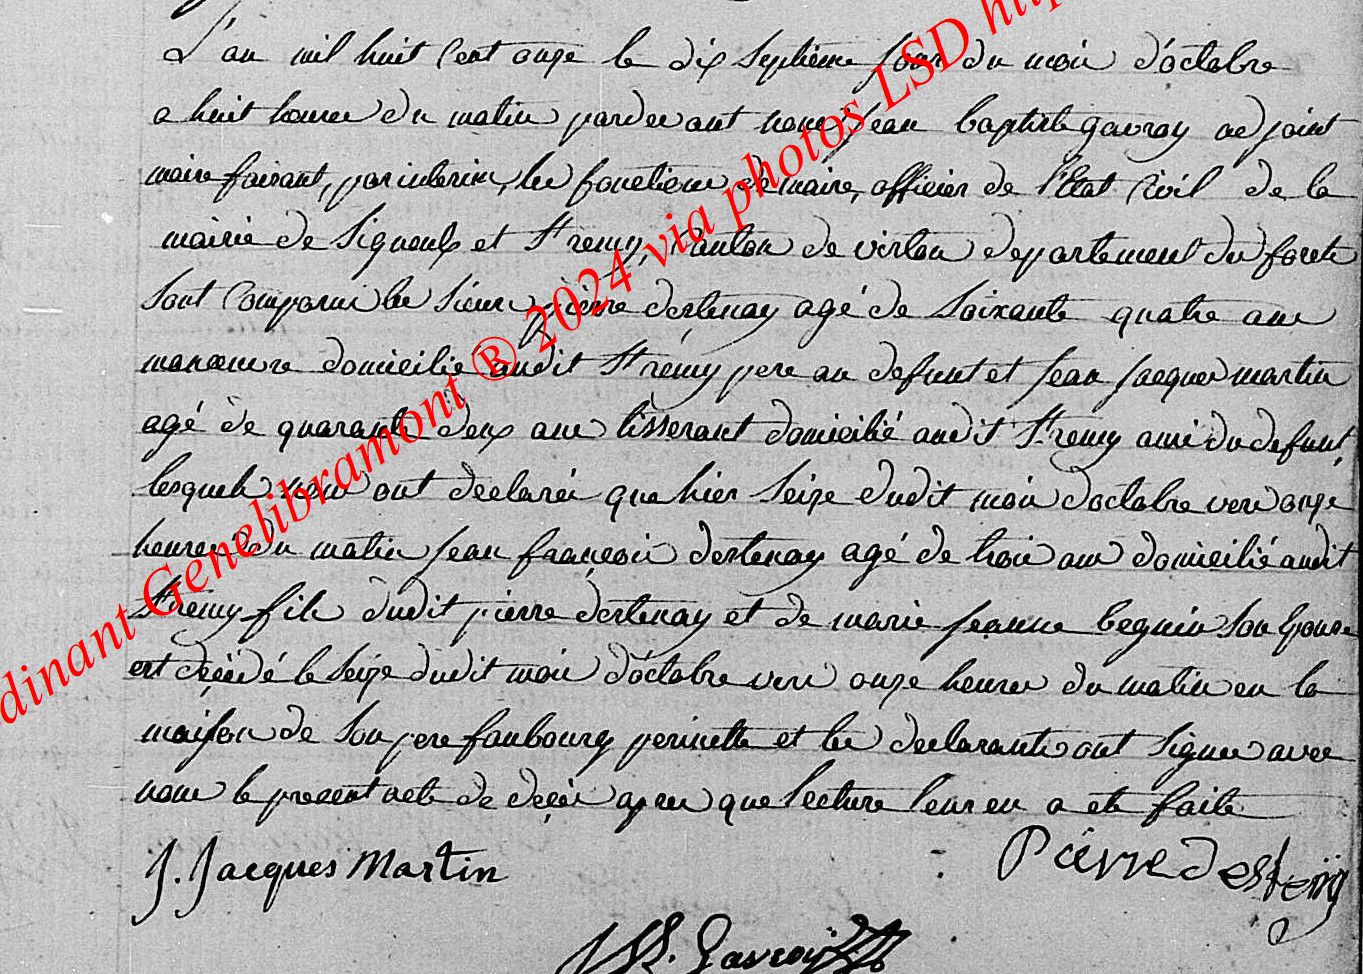 L'an mil huit Cent onze le dix Septieme jour du mois d'octobre
a huit heures du matin pardevant nous jean baptiste gavroy adjoint
maire faisant, par interim, les fonctions de maire, officier de l'Etat Civil de la
mairie de Signeulx et St remy, Canton de virton departement du forets
Sont Comparus les Sieurs pierre destenay agé de Soixante quatre ans
manoeuvre domicilié audit St remy pere au defunt et jean jacques martin
agé de quarante deux ans tisserant domicilié audit St remy ami du defunt,
lesquels nous ont declarés que hier Seize dudit mois d'octobre vers onze
heures du matin jean françois destenay agé de trois ans domicilié audit
St remy fils dudit pierre destenay et de marie jeanne beguin Son Epouse
est décédé le Seize dudit mois d'octobre vers onze heures du matin en la
maison de Son pere faubourg et les declarants ont Signés avec
nous le present acte de décès apres que lecture leur en a ete faite
J. Jacques Martin
Pierre destenay
Gavroy
dinant Genelibramont ® 2024 via photos LSD